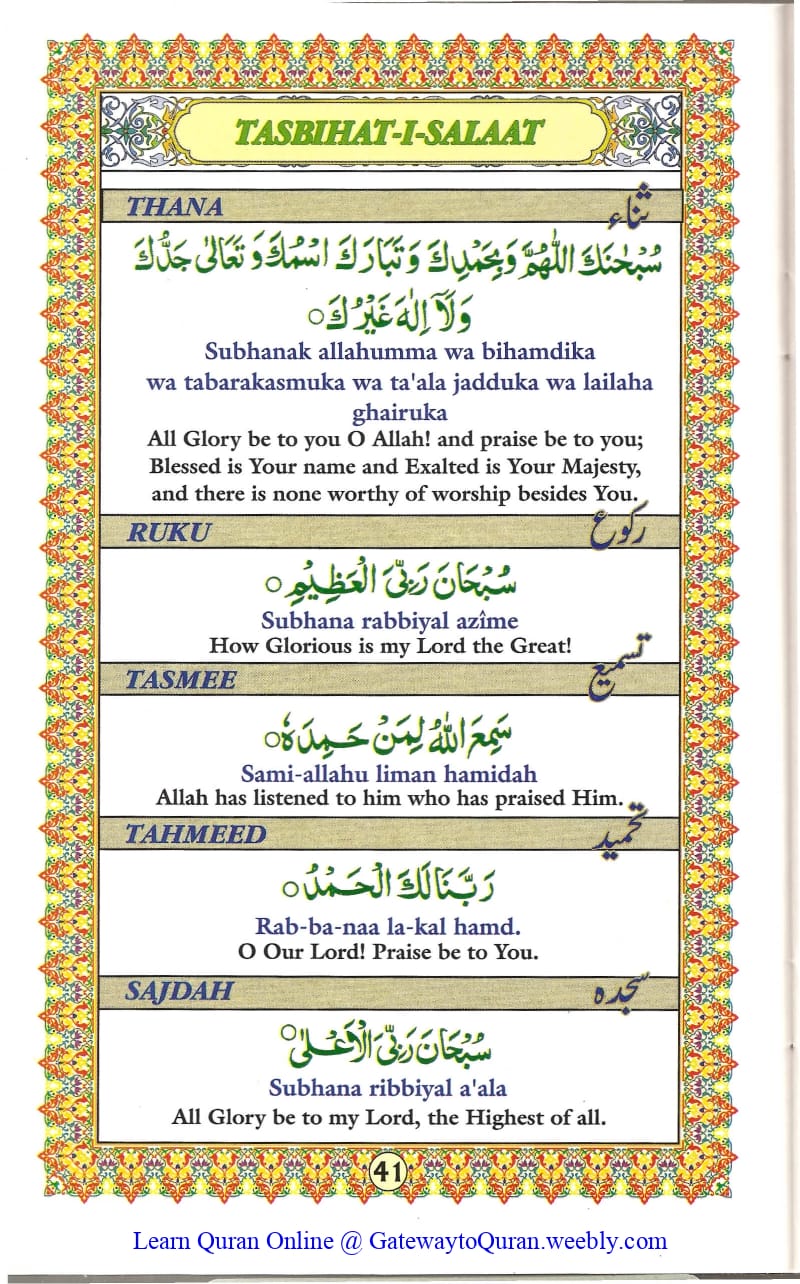 TASBIHAT-I-SALAAT
THANA ثناء
سُبْحٰنَكَ اللّٰهُمَّ وَبِحَمْدِكَ وَتَبَارَكَ اسْمُكَ وَ تَعَالٰى جَدُّكَ
وَلَآ اِلٰهَ غَيْرُكَ○
Subhanak allahumma wa bihamdika
wa tabarakasmuka wa ta'ala jadduka wa lailaha
ghairuka
All Glory be to you O Allah! and praise be to you;
Blessed is Your name and Exalted is Your Majesty,
and there is none worthy of worship besides You.
RUKU رکوع
سُبْحَانَ رَبِّىَ الْعَظِيْمِ ○
Subhana rabbiyal azîme
How Glorious is my Lord the Great!
TASMEE تسمیع
سَمِعَ اللّٰهُ لِمَنْ حَمِدَهٗ○
Sami-allahu liman hamidah
Allah has listened to him who has praised Him.
TAHMEED تحمید
رَبَّنَا لَكَ الْحَمْدُ ○
Rab-ba-naa la-kal hamd.
O Our Lord! Praise be to You.
SAJDAH سجدہ
سُبْحَانَ رَبِّىَ الْاَعْلٰى○
Subhana ribbiyal a'ala
All Glory be to my Lord, the Highest of all.
41
Learn Quran Online @ GatewaytoQuran.weebly.com